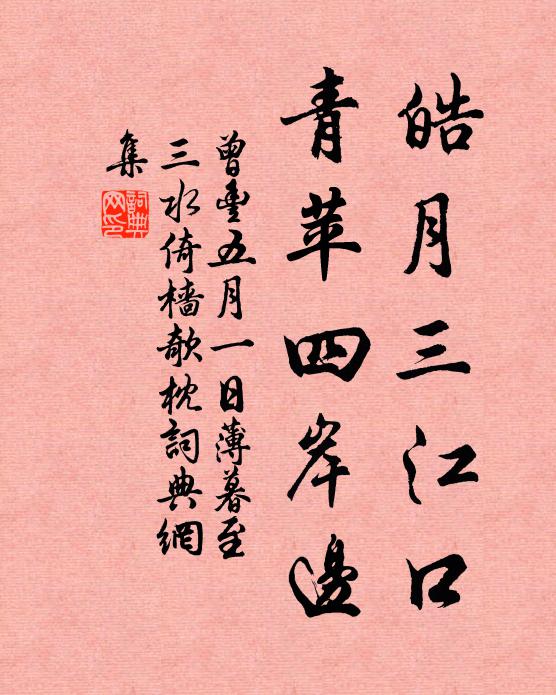 皓月三江口
青苹四岸邊
曾豐五月一日薄暮至
三水倚檣欹枕詞典網
集
詞典
网印